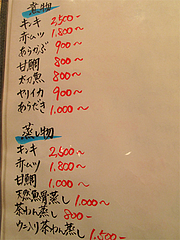 煮物
キンキ 2,500〜
赤ムツ 1,800〜
あらかぶ 900〜
甘鯛 800〜
太刀魚 800〜
ヤリイカ 900〜
あらだき 1,000〜
蒸し物
キンキ 2,500〜
赤ムツ 1,800〜
甘鯛 1,000〜
天然魚骨蒸し 1,000〜
茶わん蒸し 800-
ウニ入り茶わん蒸し 1,500-